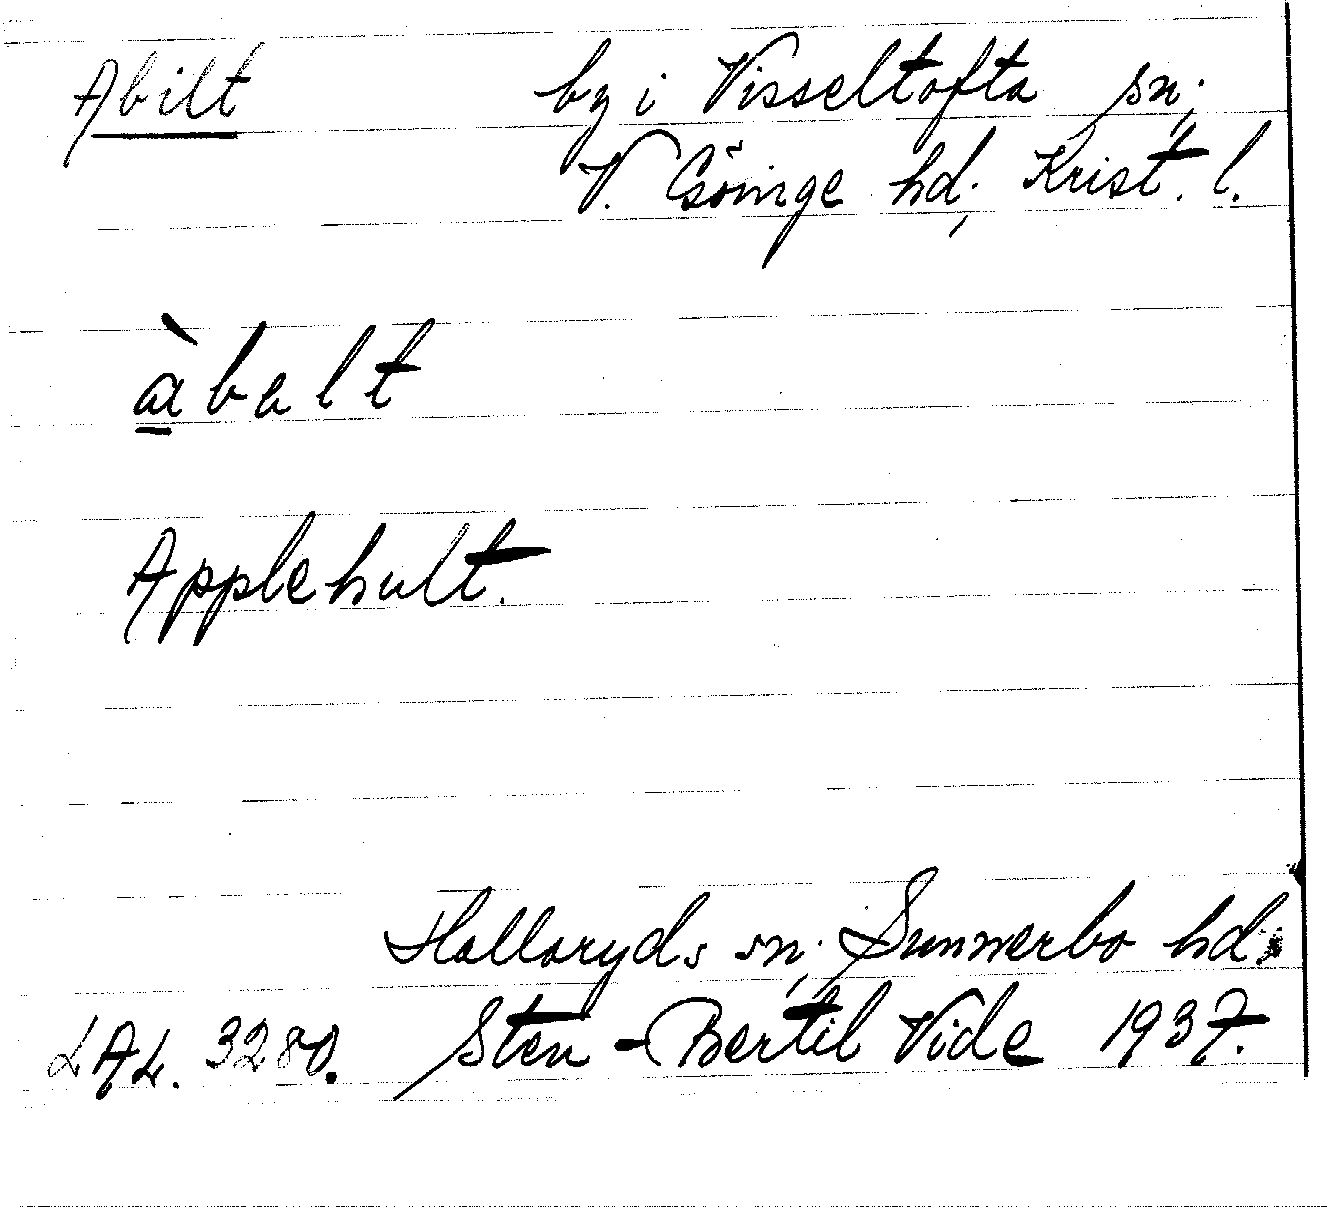 Abilt by i Visseltofta sn;
V. Göinge hd; Krist. l.
àbalt
Applehult.
Hallaryds sn; Sunnerbo hd.
LAL. 3280. Sten-Bertil Vide 1937.